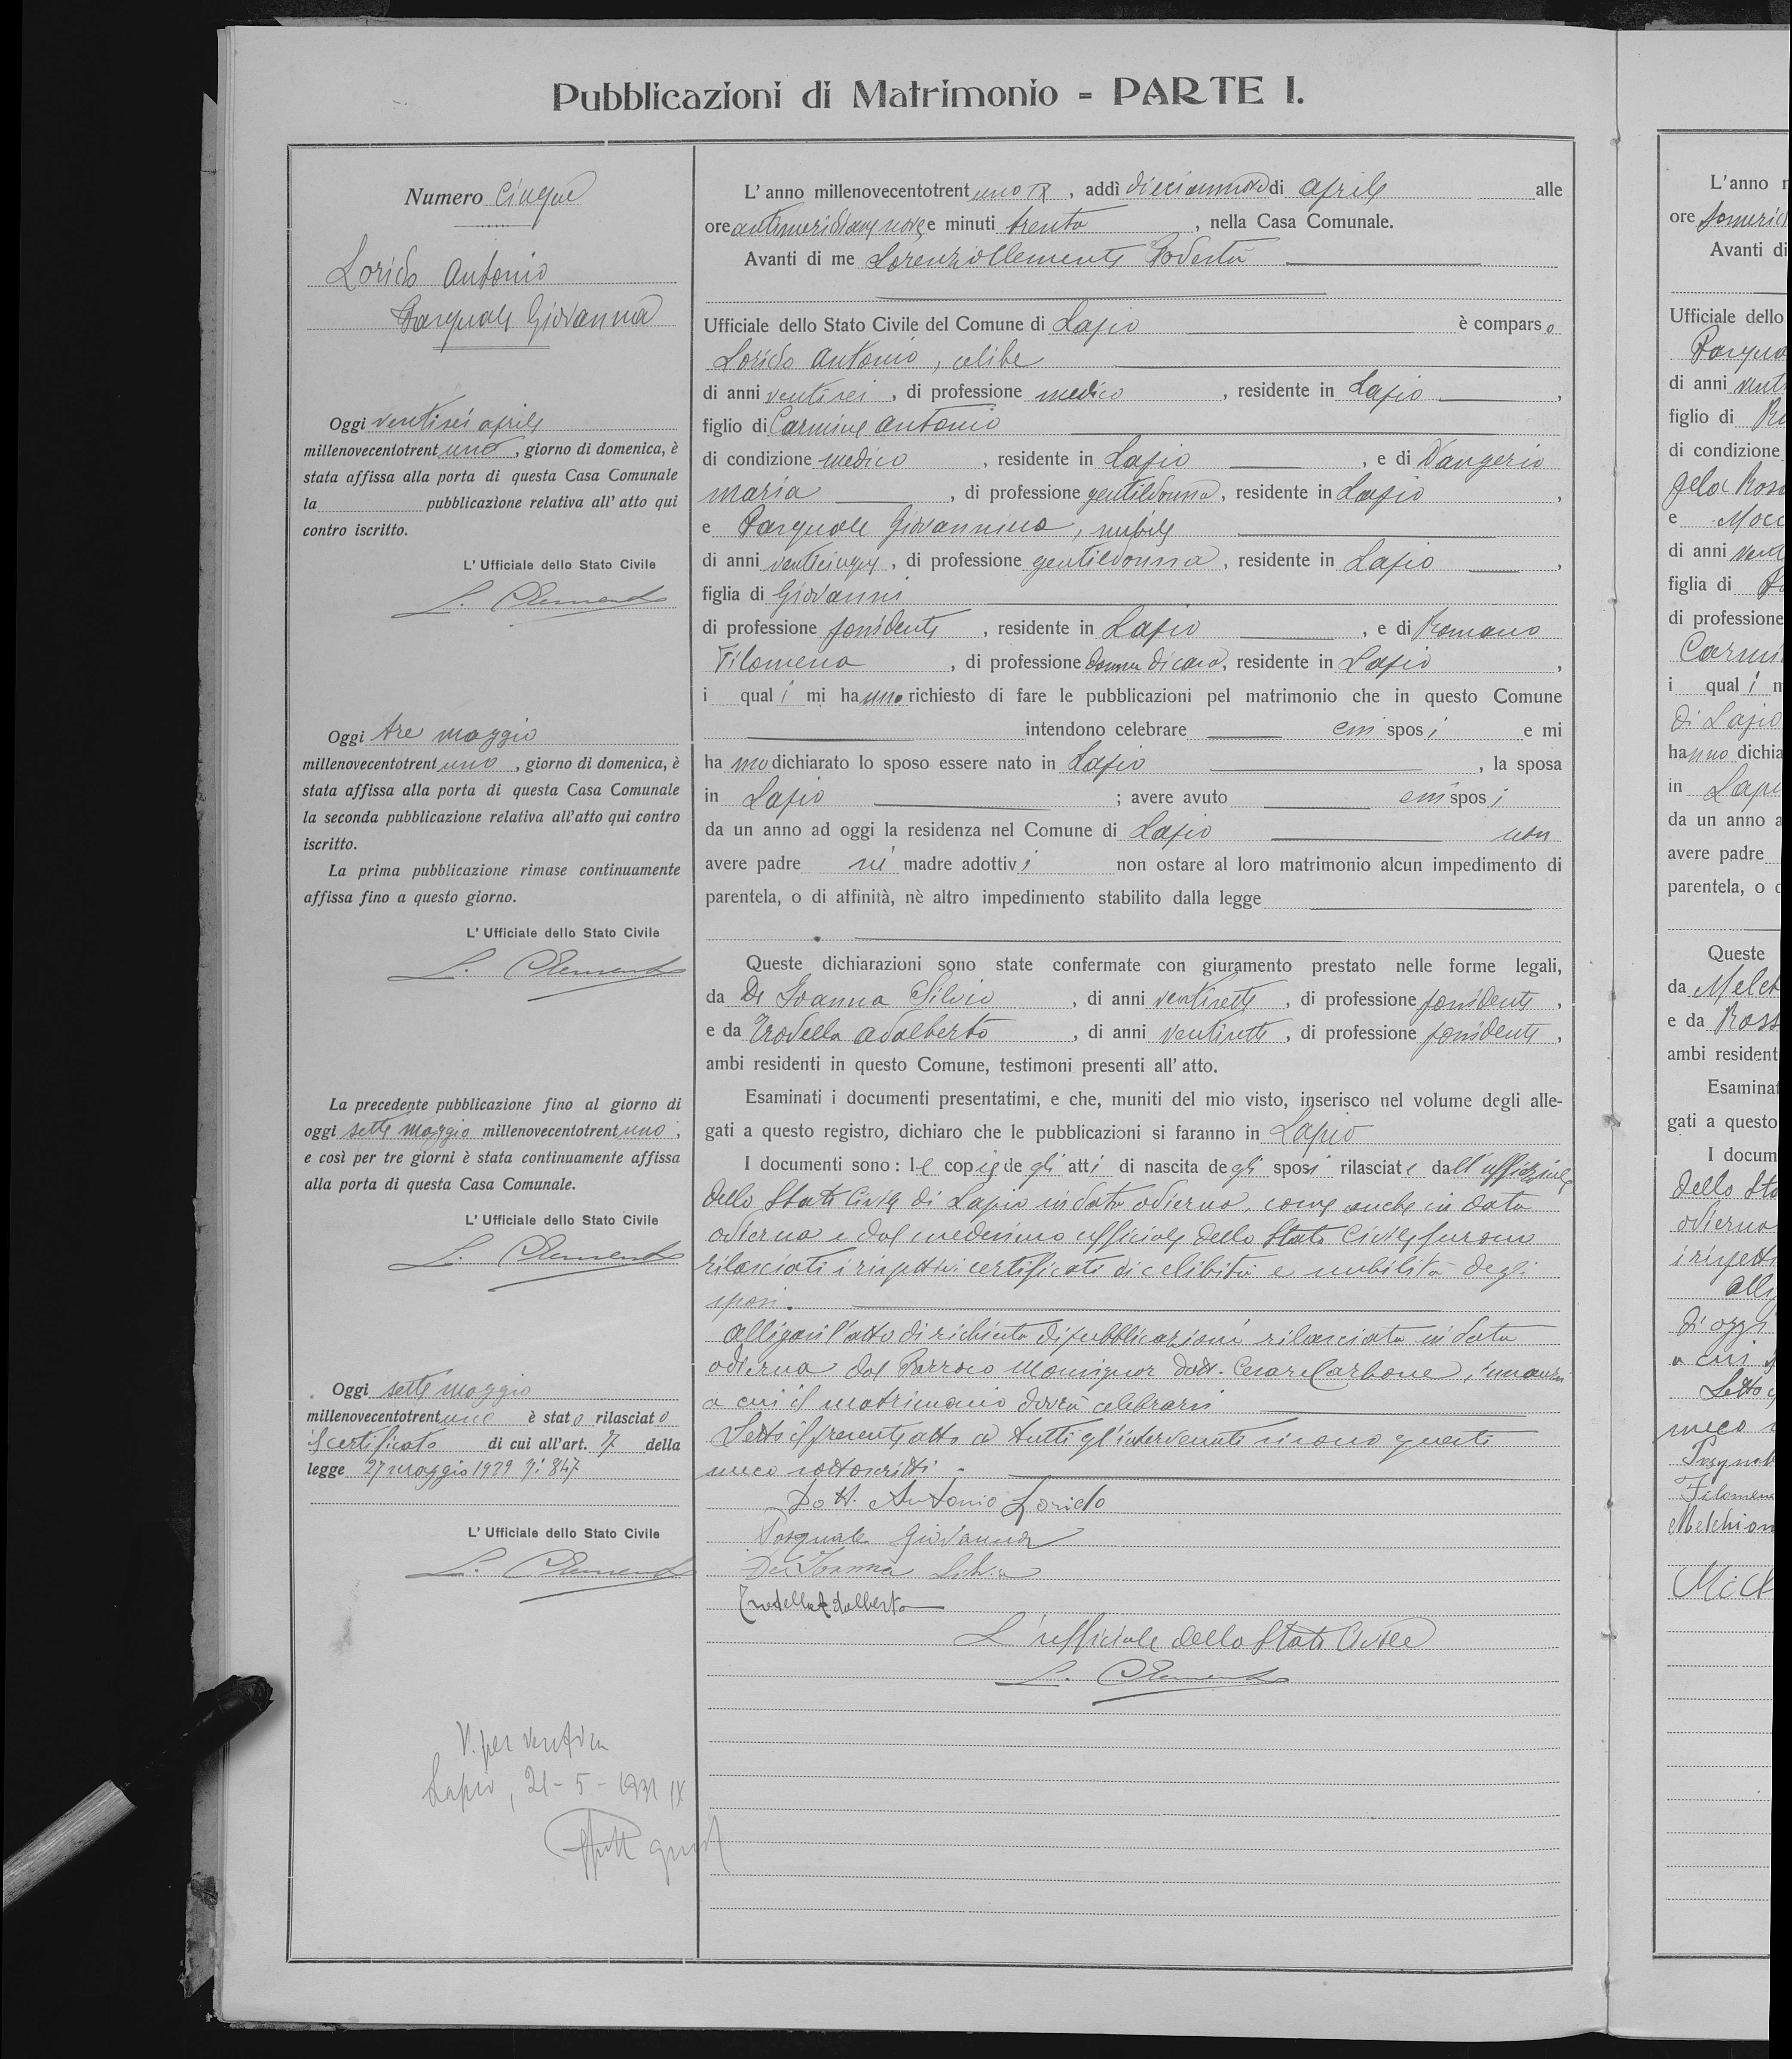 Pubblicazioni di Matrimonio - PARTE I.
Numero cinque
Lorido Antonio
Pasquale Giovanna
Oggi ventisei aprile
millenovecentotrent uno, giorno di domenica, è
stata affissa alla porta di questa Casa Comunale
la pubblicazione relativa all' atto qui
contro iscritto.
L' Ufficiale dello Stato Civile
L. Clemente
Oggi tre maggio
millenovecentotrent uno, giorno di domenica, è
stata affissa alla porta di questa Casa Comunale
la seconda pubblicazione relativa all'atto qui contro
iscritto.
La prima pubblicazione rimase continuamente
affissa fino a questo giorno.
L' Ufficiale dello Stato Civile
L. Clemente
La precedente pubblicazione fino al giorno di
oggi sette maggio millenovecentotrent uno,
e così per tre giorni è stata continuamente affissa
alla porta di questa Casa Comunale.
L' Ufficiale dello Stato Civile
L. Clemente
Oggi sette maggio
millenovecentotrent uno è stato rilasciato
il certificato di cui all'art. 7 della
legge 27 maggio 1929 n: 847
L' Ufficiale dello Stato Civile
L. Clemente
V. per verifica
Lapio, 21-5-1931 IX
L' anno millenovecentotrent uno IX, addì diciannove di aprile alle
ore antimeridiane nove e minuti trenta, nella Casa Comunale.
Avanti di me Lorenzo Clemente Podestà
Ufficiale dello Stato Civile del Comune di Lapio è comparso
Lorido Antonio, celibe
di anni ventisei, di professione medico, residente in Lapio,
figlio di Carmine Antonio
di condizione medico, residente in Lapio, e di D'Angerio
Maria, di professione gentildonna, residente in Lapio,
e Pasquale Giovannina, nubile
di anni venticinque, di professione gentildonna, residente in Lapio,
figlia di Giovanni
di professione possidente, residente in Lapio, e di Romano
Filomena, di professione donna di casa, residente in Lapio,
i quali mi hanno richiesto di fare le pubblicazioni pel matrimonio che in questo Comune
intendono celebrare essi sposi e mi
hanno dichiarato lo sposo essere nato in Lapio, la sposa
in Lapio; avere avuto essi sposi
da un anno ad oggi la residenza nel Comune di Lapio non
avere padre nè madre adottivi non ostare al loro matrimonio alcun impedimento di
parentela, o di affinità, nè altro impedimento stabilito dalla legge
Queste dichiarazioni sono state confermate con giuramento prestato nelle forme legali,
da De Ioanna Silvio, di anni ventisette, di professione possidente,
e da Trodella Adalberto, di anni ventisette, di professione possidente,
ambi residenti in questo Comune, testimoni presenti all' atto.
Esaminati i documenti presentatimi, e che, muniti del mio visto, inserisco nel volume degli alle-
gati a questo registro, dichiaro che le pubblicazioni si faranno in Lapio
I documenti sono: le copie degli atti di nascita degli sposi rilasciate dall'ufficiale
dello Stato Civile di Lapio in data odierna, come anche in data
odierna e dal medesimo ufficiale dello Stato Civile furono
rilasciati i rispettivi certificati di celibità e nubilità degli
sposi.
Alligasi l'atto di richiesta di pubblicazioni rilasciata in data
odierna dal Parroco Monsignor Dott. Cesare Carbone, innanzi
a cui il matrimonio dovrà celebrarsi
Letto il presente atto a tutti gl'intervenuti si sono questi
meco sottoscritti.
Dott. Antonio Lorido
Pasquale Giovanna
De Ioanna Silvio
Trodella Adalberto
L'ufficiale dello Stato Civile
L. Clemente
L'anno
ore pomerid
Avanti di
Ufficiale dello
Pasqua
di anni vent
figlio di Ro
di condizione
gela Rosa
e Mocc
di anni vent
figlia di
di professione
Carmi
i quali m
di Lapio
hanno dichia
in Lapi
da un anno a
avere padre
parentela, o d
Queste
da Melch
e da Ross
ambi resident
Esaminat
gati a questo
I docum
dello Sta
odierna
i rispetti
Allig
di oggi
a cui
Letto
meco
Pasqual
Filomena
Melchion
Mich